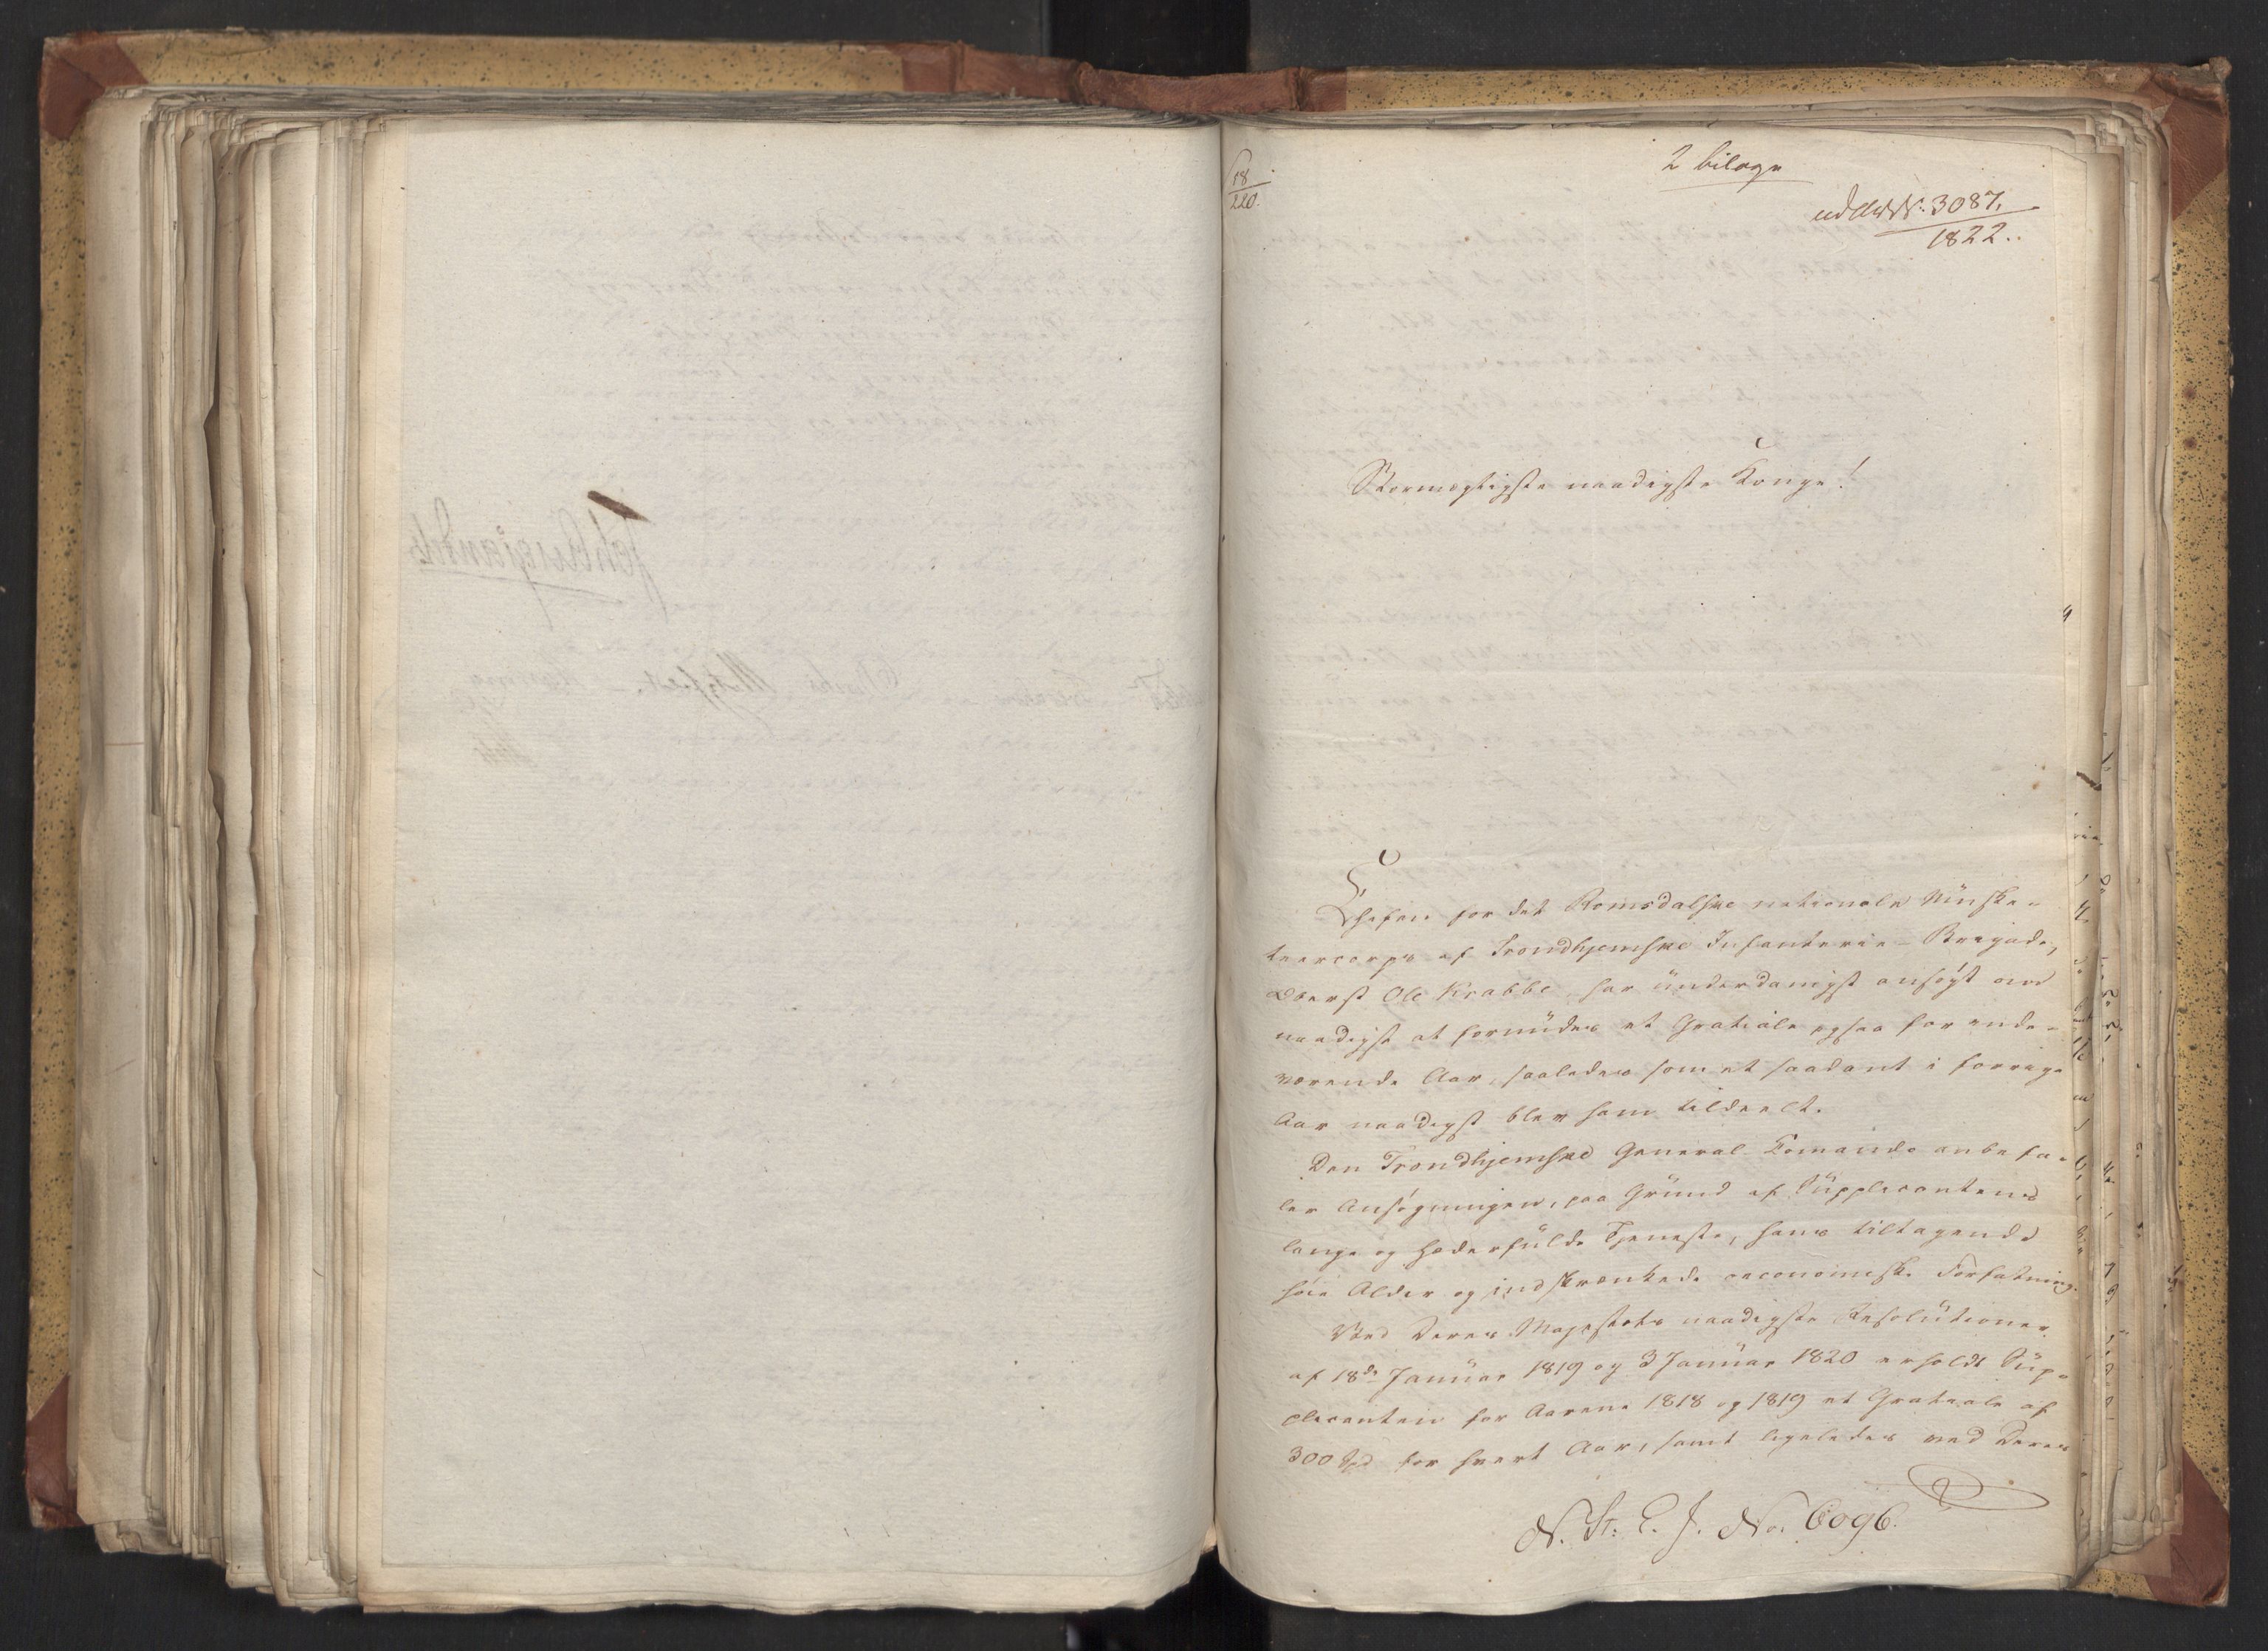 18
220.
2 bilage
udd No: 3087.
1822.
Stormægtigste naadigste Konge!
Chefen for det Romsdalske nationale Muske-
teercorps af Trondhjemske Infanterie-Brigade,
Oberst Ole Krabbe har underdanigst ansøgt om
naadigst at forundes et Gratiale ogsaa for inde-
værende Aar, saaledes som et saadant i forrige
Aar naadigst blev ham tildeelt.
Den Trondhjemske General Comando anbefa-
ler Ansøgningen, paa Grund af Supplicantens
lange og hæderfulde Tjeneste, hans tiltagende
høie Alder og indskrænkede oeconomiske Forfatning.
Ved Deres Majestæts naadigste Resolutioner
af 18de Januar 1819 og 3 Januar 1820 erholdt Sup-
plicanten for Aarene 1818 og 1819 et Gratiale af
300 Spd for hvert Aar, samt ligeledes ved Deres
N. St: C. J. No. 6096.